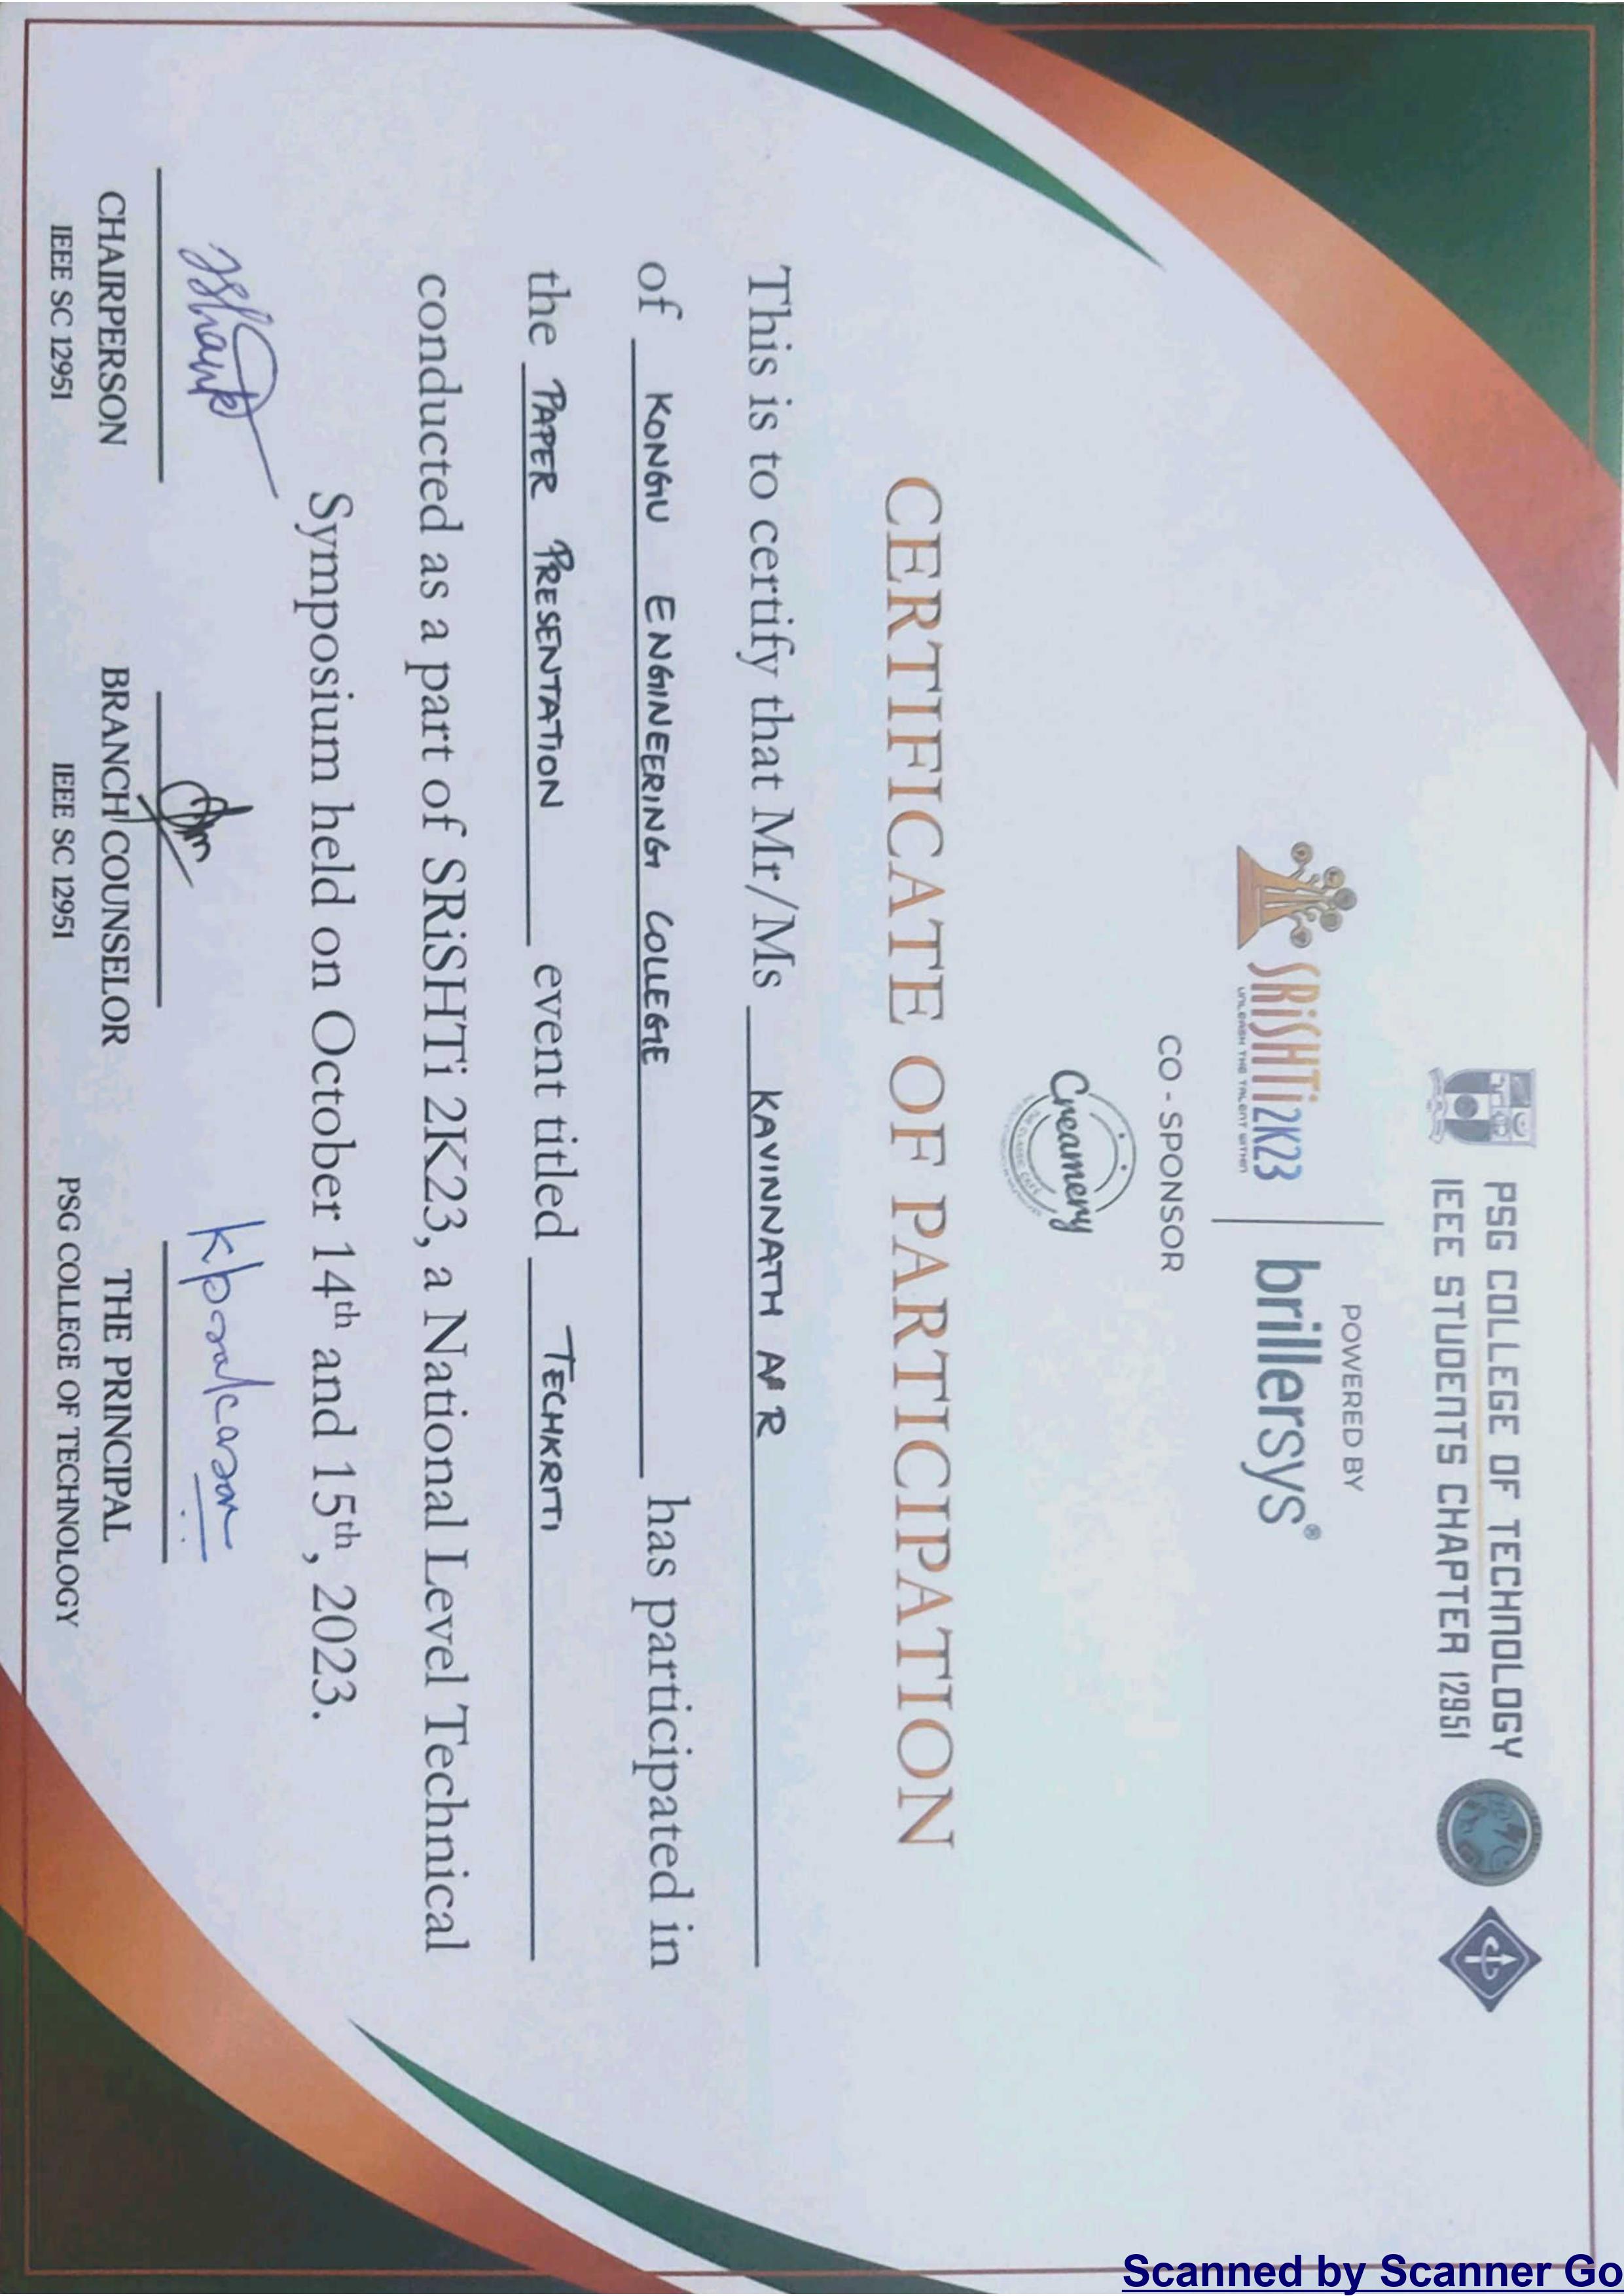 PSG COLLEGE OF TECHNOLOGY
IEEE STUDENTS CHAPTER 12951
SRiSHTi2K23
UNLEASH THE TALENT WITHIN
POWERED BY
brillersys®
CO - SPONSOR
Creamery
THE CLASSIC CAFE
CERTIFICATE OF PARTICIPATION
This is to certify that Mr/Ms KAVINNATH A R
of KONGU ENGINEERING COLLEGE has participated in
the PAPER PRESENTATION event titled TECHKRITI
conducted as a part of SRiSHTi 2K23, a National Level Technical
Symposium held on October 14th and 15th, 2023.
kprakasan
CHAIRPERSON
IEEE SC 12951
BRANCH COUNSELOR
IEEE SC 12951
THE PRINCIPAL
PSG COLLEGE OF TECHNOLOGY
Scanned by Scanner Go